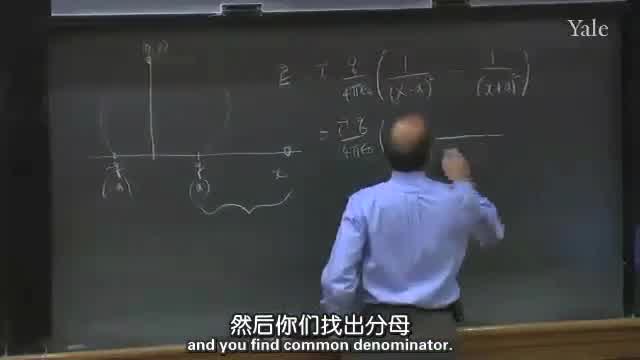 Yale
E = i q/4πε₀ ( 1/(x-a)² - 1/(x+a)² )
= i q/4πε₀ (
-q q x
(a) (a)
然后你们找出分母
and you find common denominator.